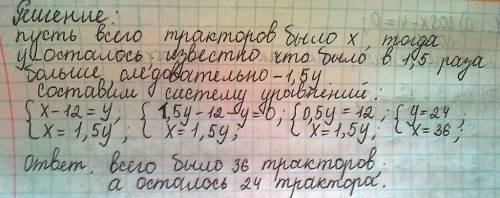 Решение:
пусть всего тракторов было x, тогда
y-осталось; известно что было в 1,5 раза
больше, следовательно - 1,5y.
Составим систему уравнений:
{x-12=y; {1,5y-12-y=0; {0,5y=12; {y=24;
{x=1,5y; {x=1,5y; {x=1,5y; {x=36;
Ответ. всего было 36 тракторов,
а осталось 24 трактора.